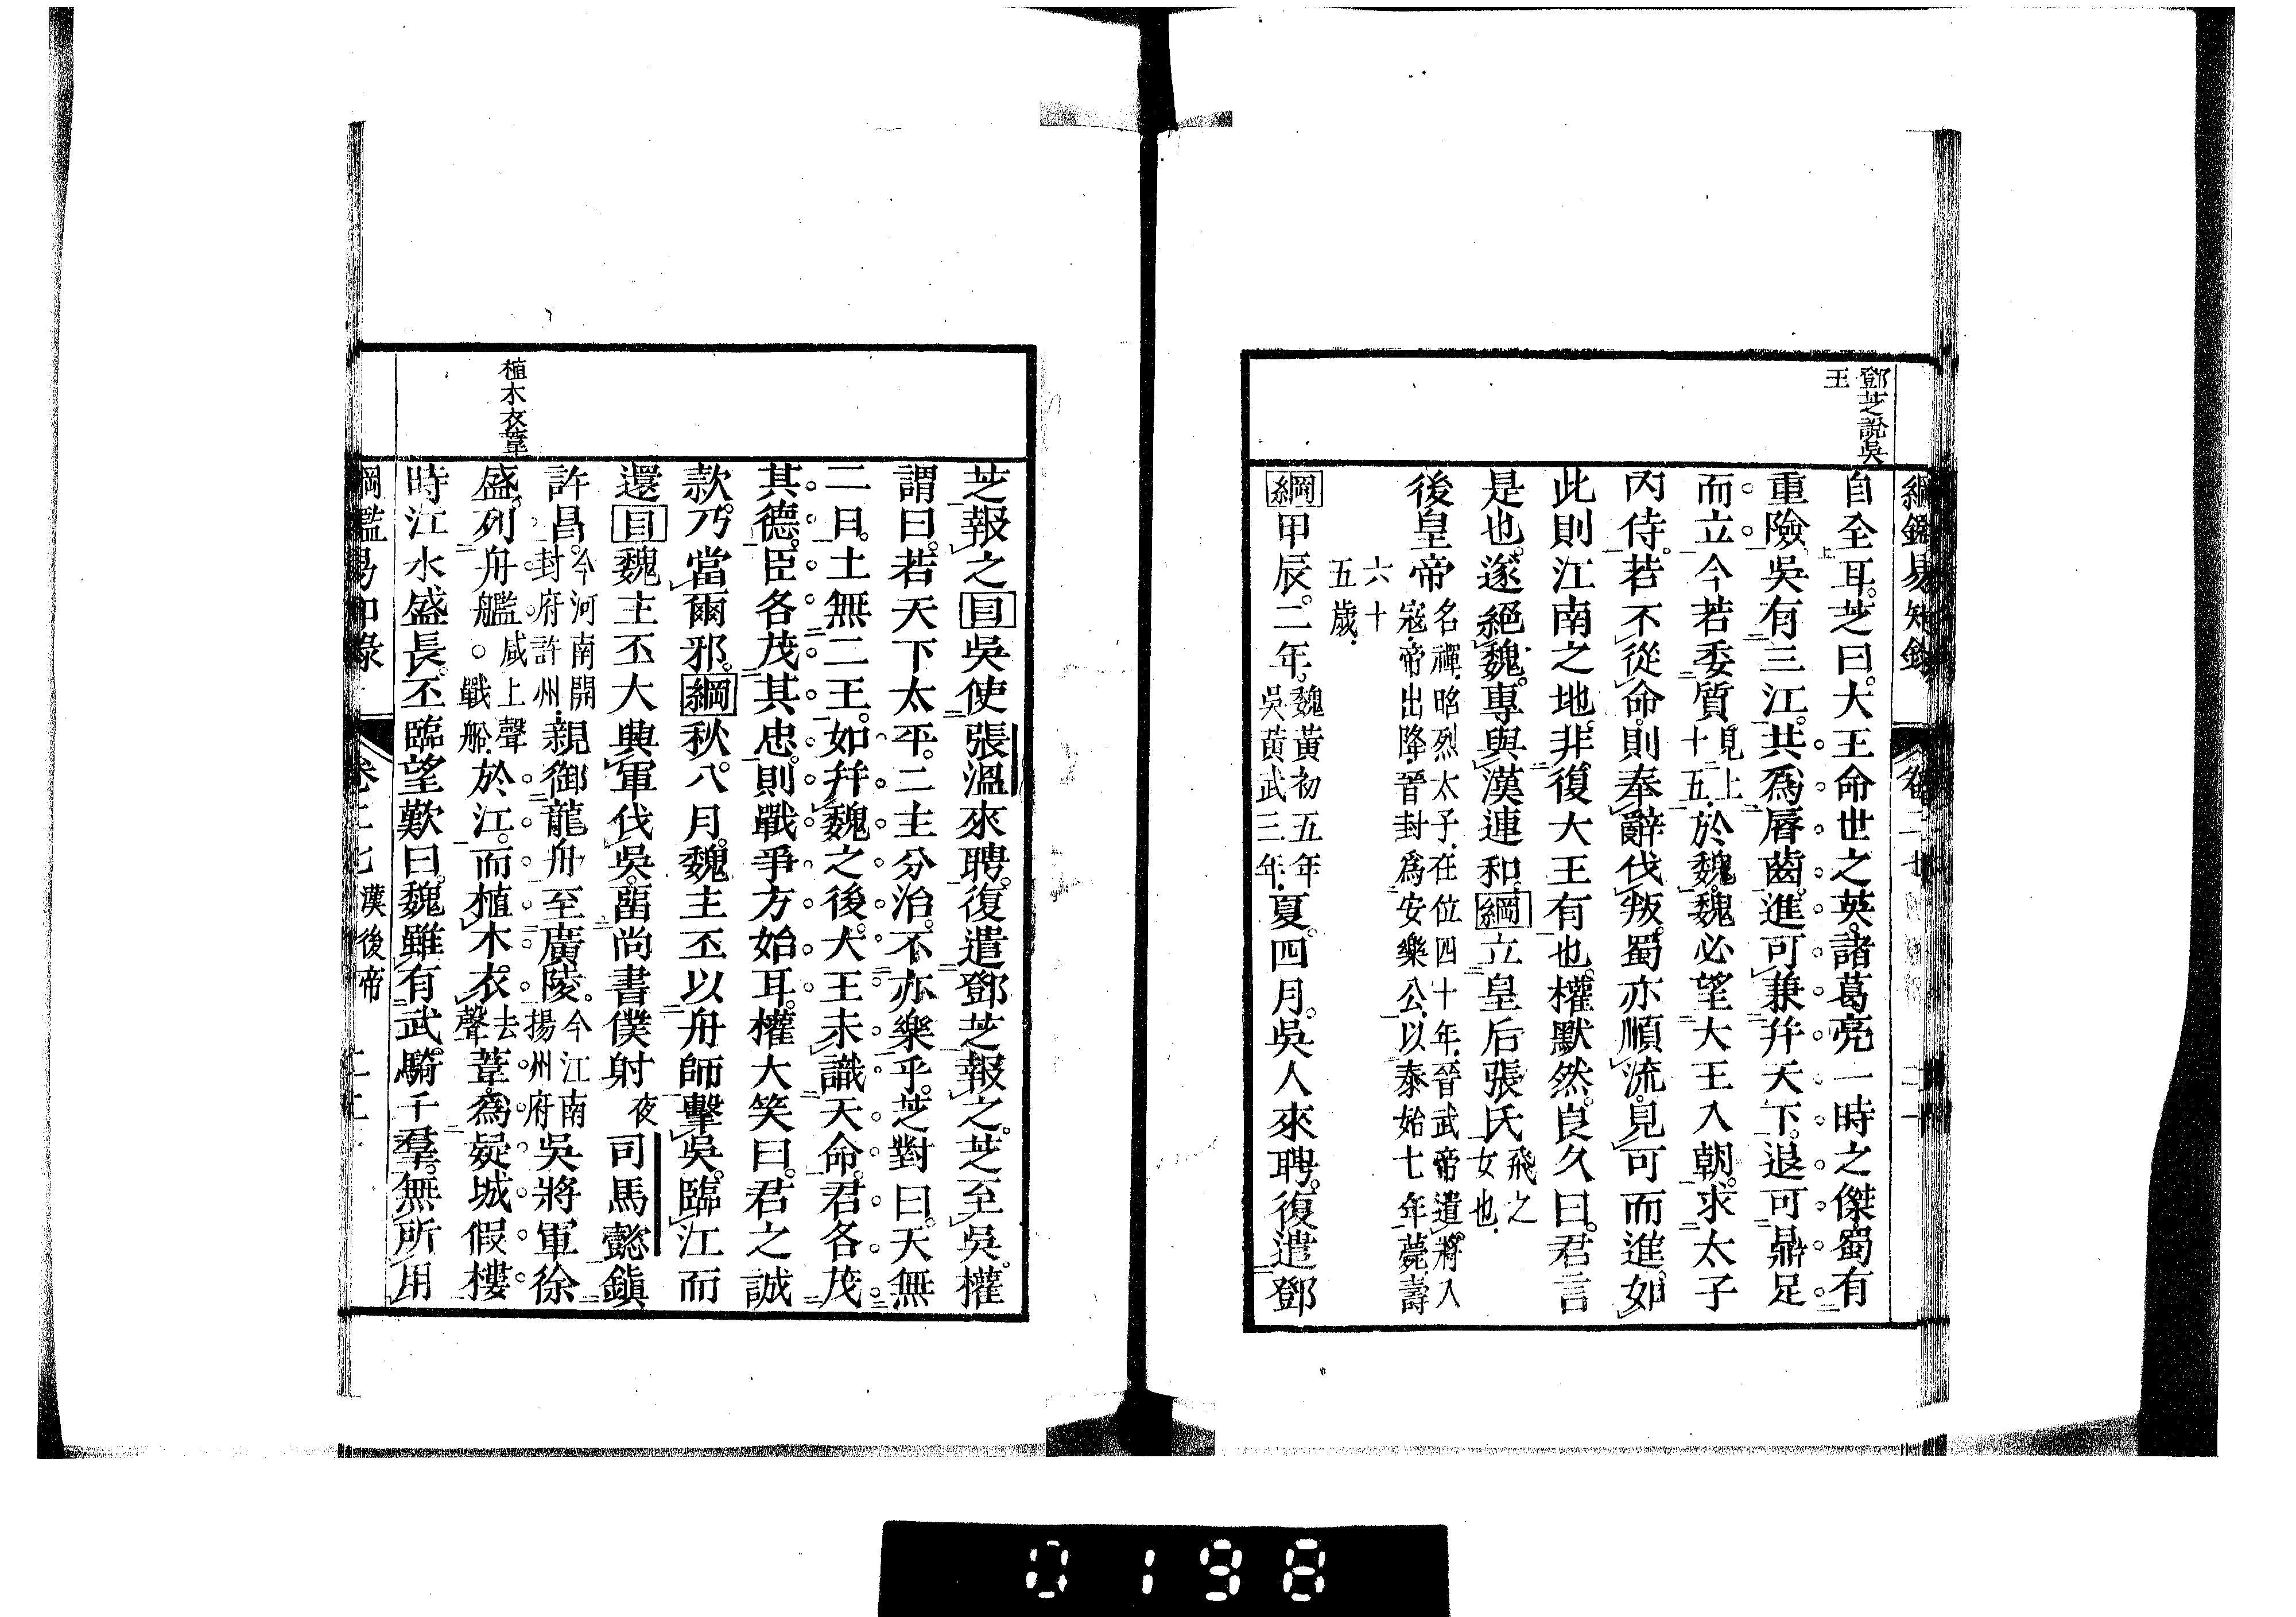 綱鑑易知錄
卷二七
鄧芝說吳
王
自全耳。芝曰。大王命世之英。諸葛亮一時之傑。蜀有
重險。吳有三江。共爲脣齒。進可兼幷天下。退可鼎足
而立。今若委質見上十五。於魏。魏必望大王入朝。求太子
內侍。若不從命。則奉辭伐叛。蜀亦順流。見可而進。如
此則江南之地。非復大王有也。權默然。良久曰。君言
是也。遂絕魏。專與漢連和。綱立皇后張氏飛之女也。
後皇帝名禪。昭烈太子。在位四十年。晉武帝遣將入寇。帝出降。晉封爲安樂公。以泰始七年薨。壽六十五歲。
綱甲辰。二年。魏黃初五年吳黃武三年。夏。四月。吳人來聘。復遣鄧
芝報之目吳使張溫來聘。復遣鄧芝報之。芝至吳。權
謂曰。若天下太平。二主分治。不亦樂乎。芝對曰。天無
二日。土無二王。如幷魏之後。大王未識天命。君各茂
其德。臣各茂其忠。則戰爭方始耳。權大笑曰。君之誠
款。乃當爾邪。綱秋。八月。魏主丕以舟師擊吳。臨江而
還目魏主丕大興軍伐吳。畱尚書僕射夜司馬懿鎭
許昌。今河南開封府許州。親御龍舟至廣陵。今江南揚州府吳將軍徐
盛。列舟艦咸上聲。戰船。於江。而植木衣去聲葦。爲疑城假樓
時江水盛長。丕臨望歎曰。魏雖有武騎千羣。無所用
植木衣葦
綱鑑易知錄
卷二七
漢後帝
0198